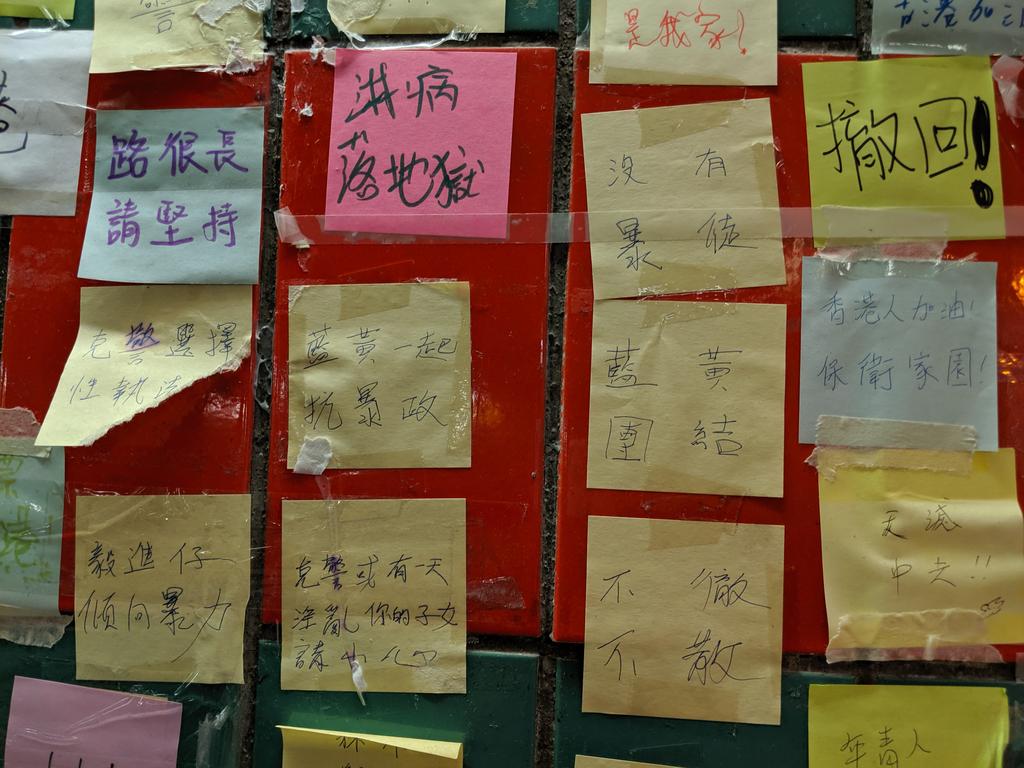 警
是我家!
香港加油
路很長
請堅持
洪病
落地獄
沒有
暴徒
撤回!
克警選擇
性執法
藍黃一起
抗暴政
藍黃
團結
香港人加油!
保衛家園!
毅進仔
傾向暴力
克警或有一天
淫亂你的子女
請小心
不撤
不散
天滅
中共!!
年青人